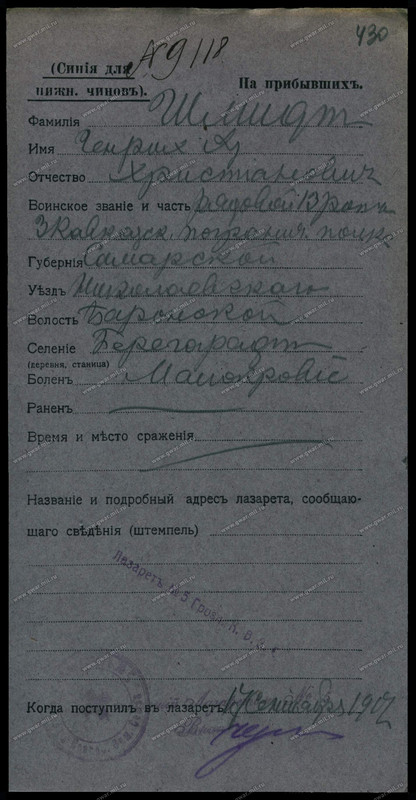 430
(Синія для № 9118
нижн. чиновъ). На прибывшихъ.
Фамилія Шмидт
Имя Генрих
Отчество Христианович
Воинское званіе и часть рядовой 13 роты
3 Кавказск. погранич. полка
Губернія Самарской
Уѣздъ Николаевскаго
Волость Баронской
Селеніе
(деревня, станица)
Боленъ Малокровіе
Раненъ
Время и мѣсто сраженія
Названіе и подробный адресъ лазарета, сообщаю-
щаго свѣдѣнія (штемпель)
Лазаретъ № 5 Грозн.
Когда поступилъ въ лазаретъ 17 Сентября 1917